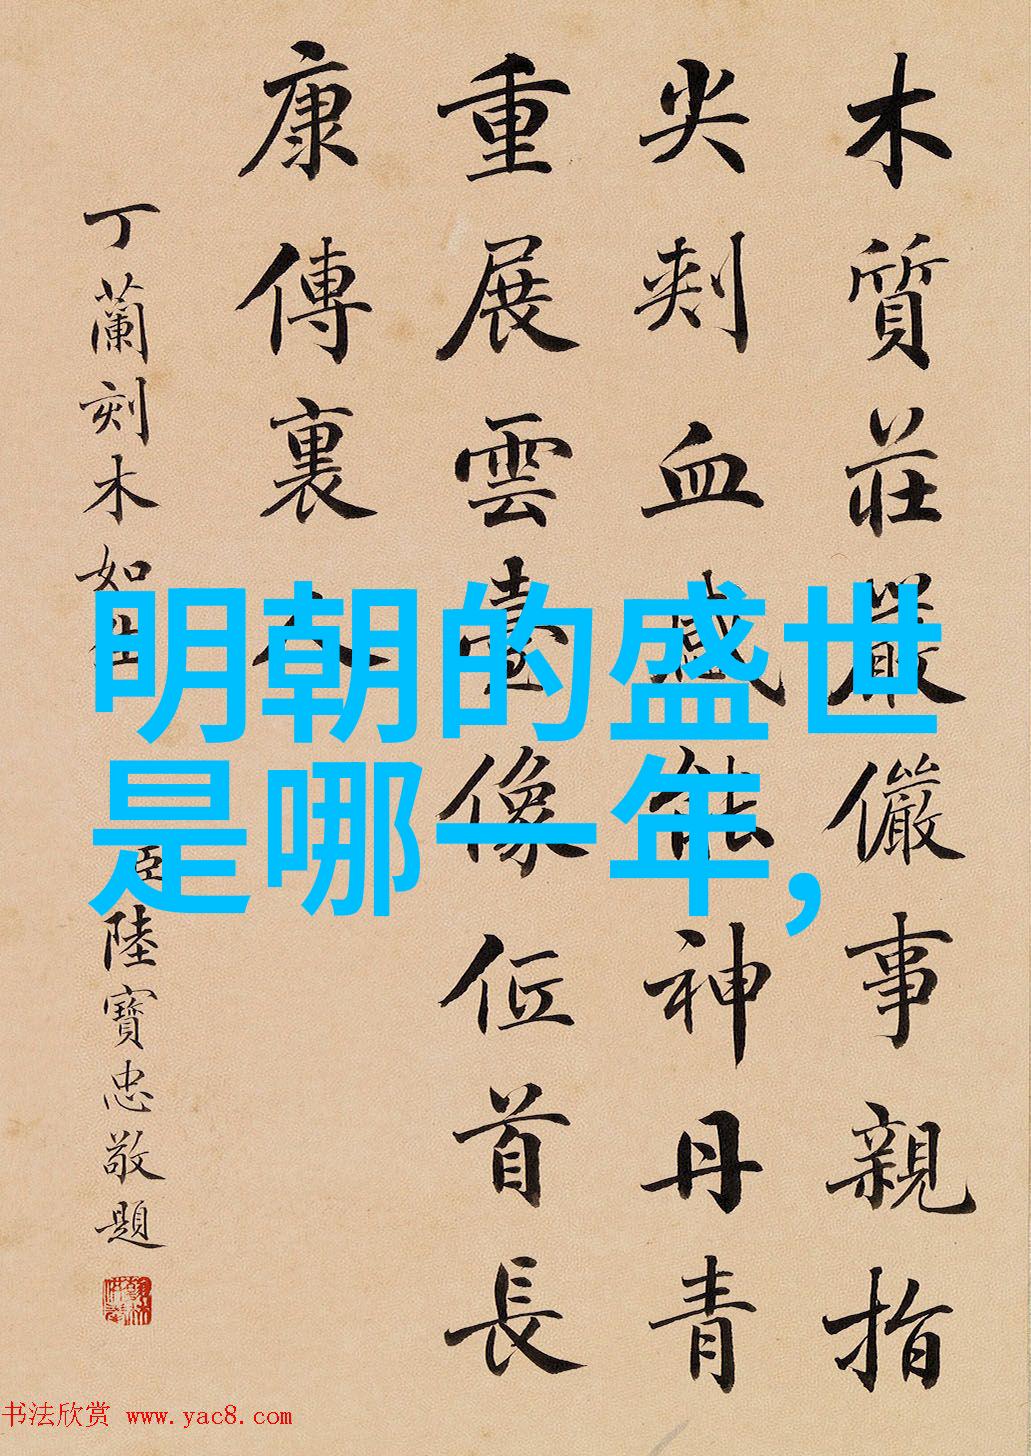 木質莊嚴儼事親指
尖刾血感能神丹青
重展雲臺像低首長
康傳裏人
丁蘭刻木如生
臣陸寶忠敬題
明朝的盛世
是哪一年,
书法欣赏 www.yac8.com